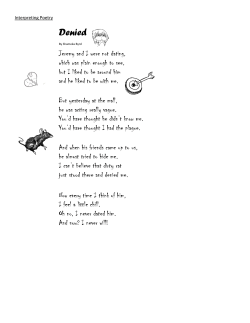 Interpreting Poetry
Denied
Jeremy and I were not dating,
which was plain enough to see,
but I liked to be around him
and he liked to be with me.
But yesterday at the mall,
he was acting really vague.
You'd have thought he didn't know me.
You'd have thought I had the plague.
And when his friends came up to us,
he almost tried to hide me.
I can't believe that dirty rat
just stood there and denied me.
Now every time I think of him,
I feel a little chill.
Oh no, I never dated him.
And now? I never will!